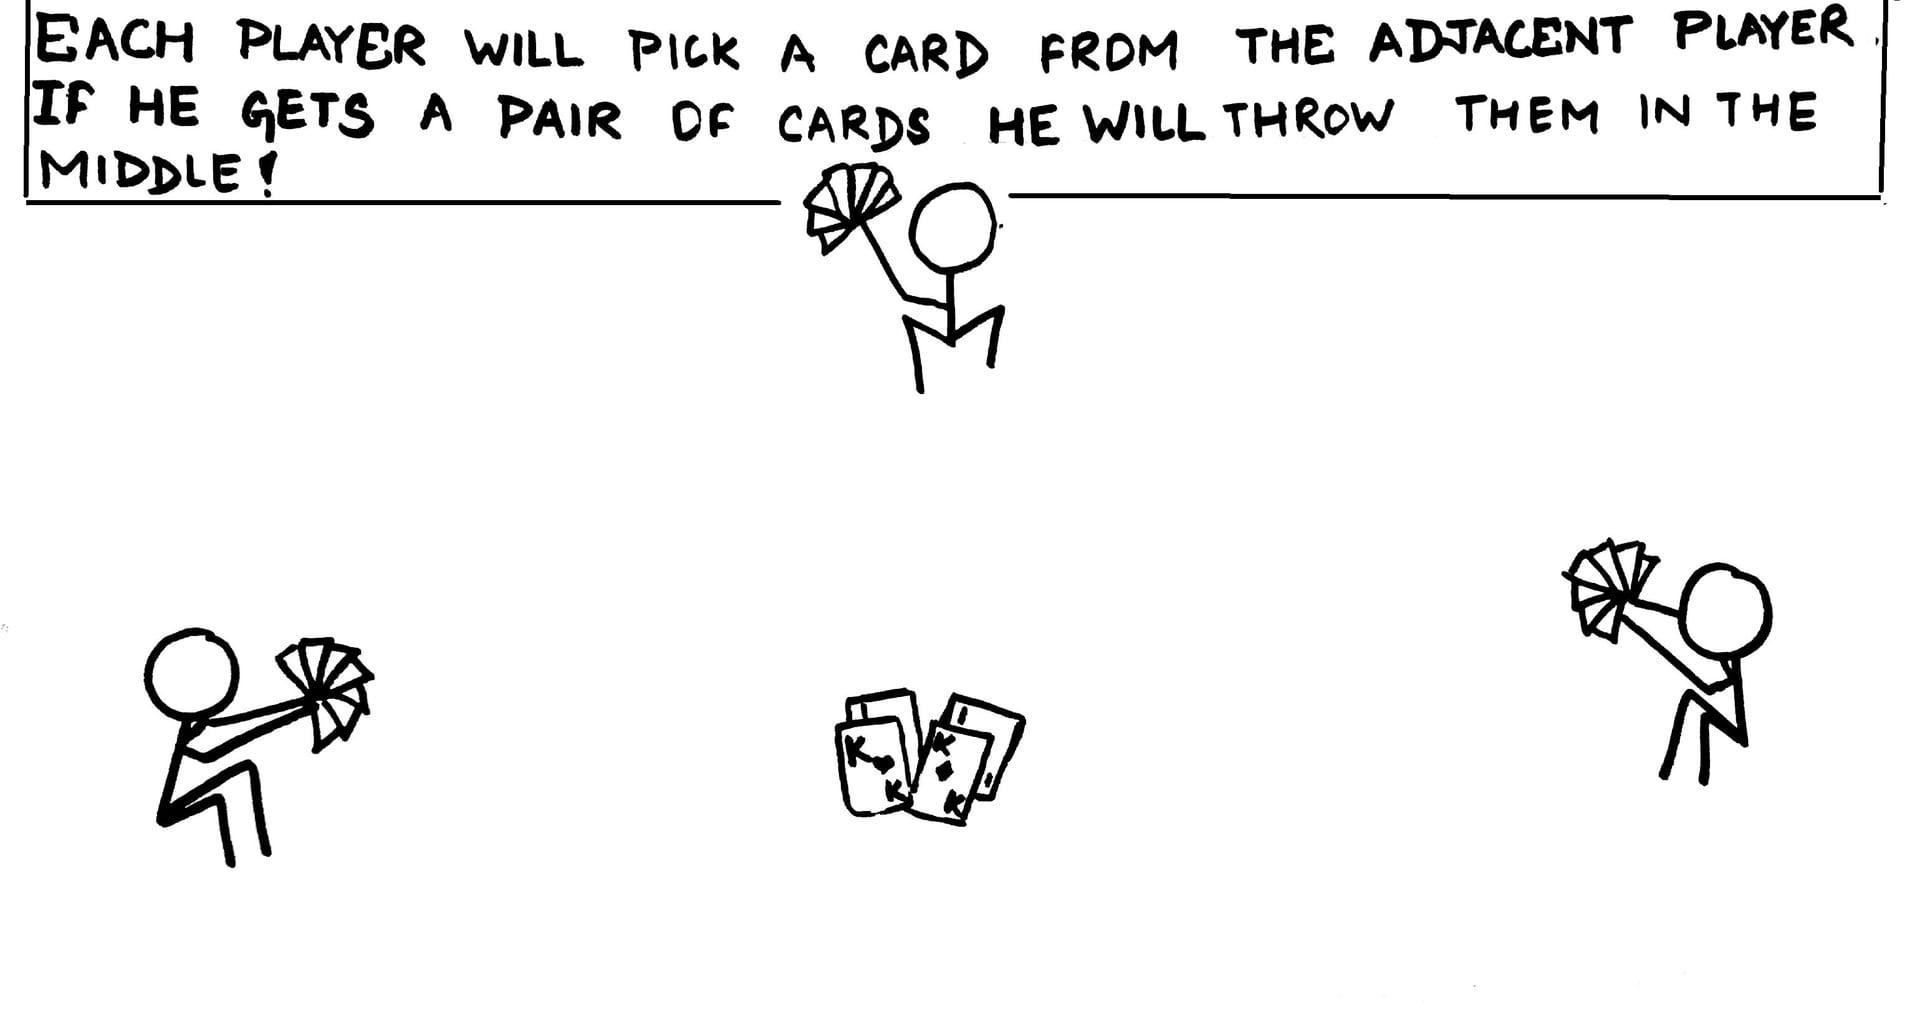 EACH PLAYER WILL PICK A CARD FROM THE ADJACENT PLAYER.
IF HE GETS A PAIR OF CARDS HE WILL THROW THEM IN THE
MIDDLE!
K K
K K